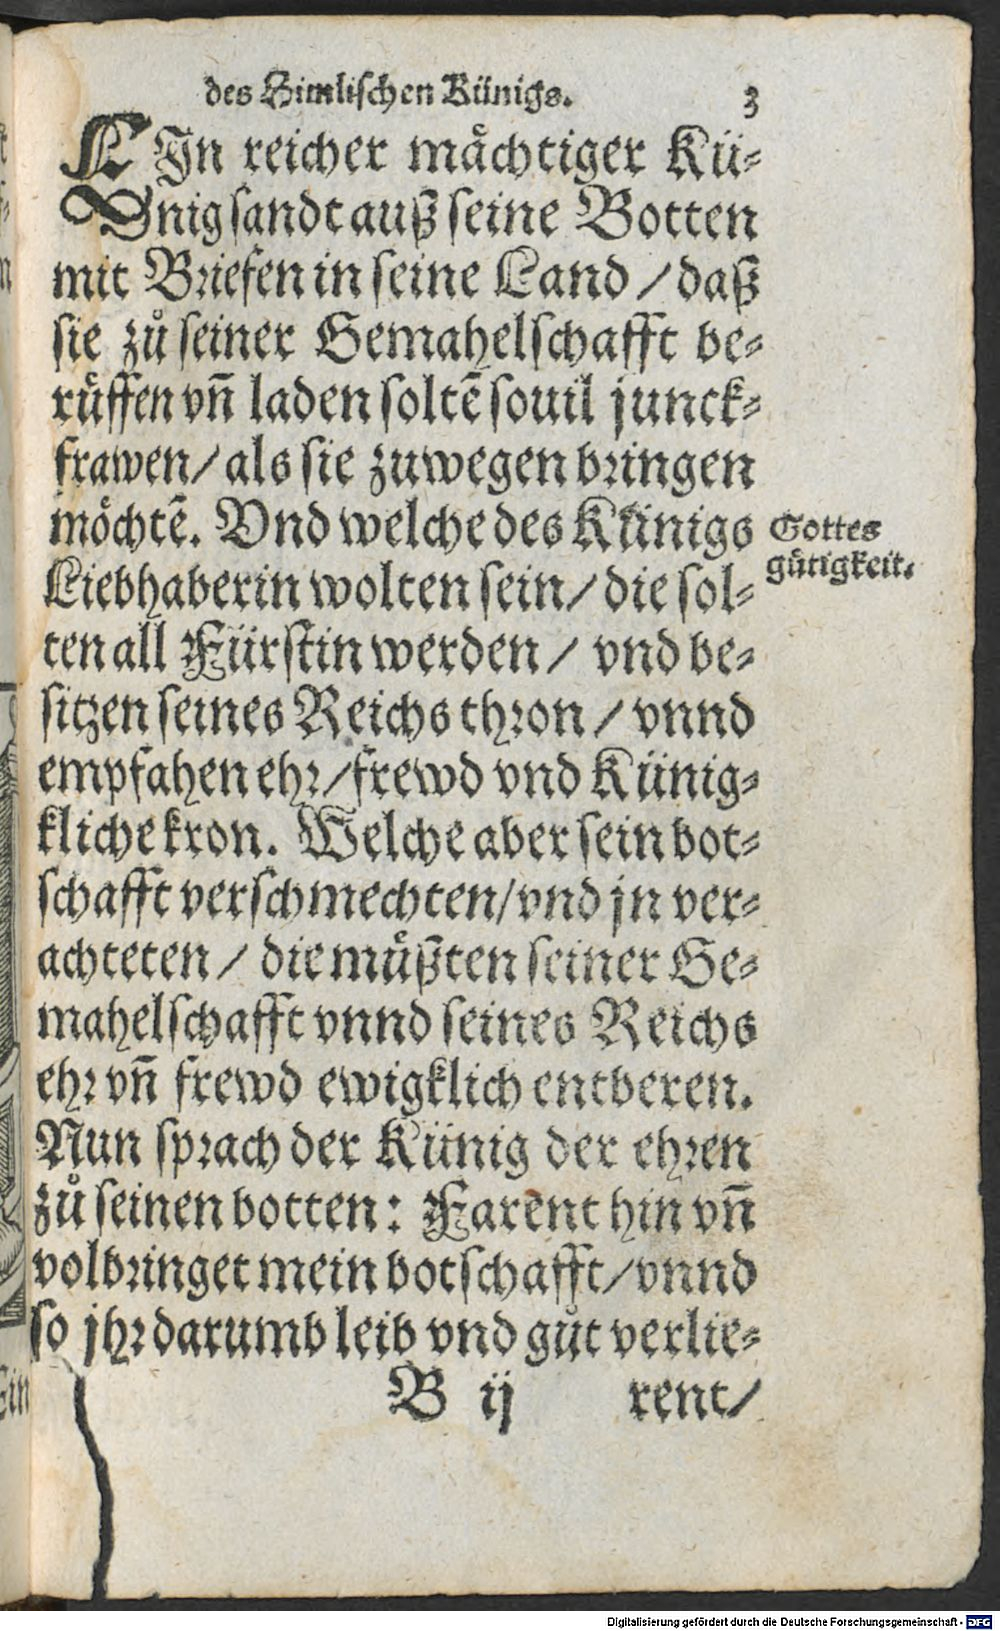 des Himlischen Künigs. 3
EIn reicher måchtiger Kü⸗
nig sandt auß seine Botten
mit Briefen in seine Land / daß
sie zů seiner Gemahelschafft be⸗
růffen vñ laden soltẽ souil junck⸗
frawen / als sie zuwegen bringen
möchtẽ. Vnd welche des Künigs
Liebhaberin wolten sein / die sol⸗
ten all Fürstin werden / vnd be⸗
sitzen seines Reichs thron / vnnd
empfahen ehr / frewd vnd Künig⸗
kliche kron. Welche aber sein bot⸗
schafft verschmechten / vnd jn ver⸗
achteten / die můßten seiner Ge⸗
mahelschafft vnnd seines Reichs
ehr vñ frewd ewigklich entberen.
Nun sprach der Künig der ehren
zů seinen botten: Farent hin vñ
volbringet mein botschafft / vnnd
so jhr darumb leib vnd gůt verlie⸗
B ij rent /
Gottes
gütigkeit.
Digitalisierung gefördert durch die Deutsche Forschungsgemeinschaft - DFG